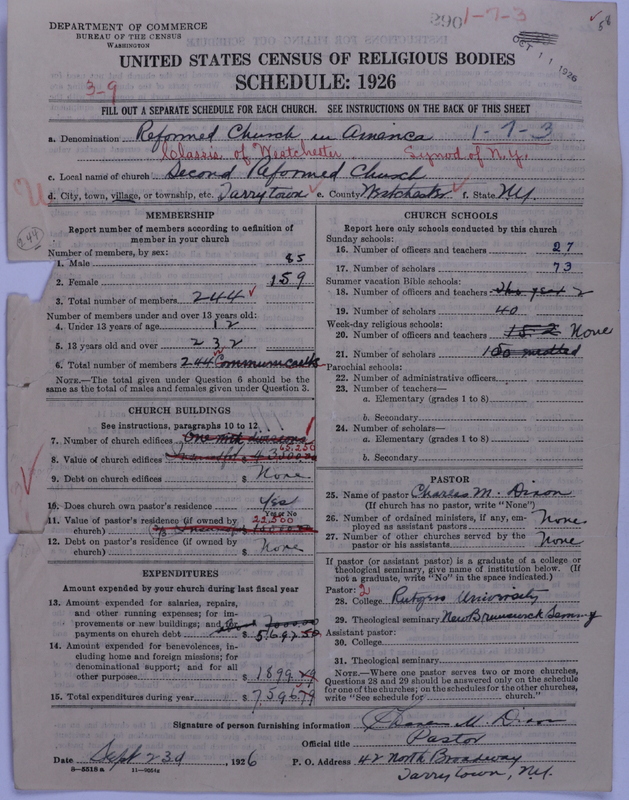 DEPARTMENT OF COMMERCE
BUREAU OF THE CENSUS
WASHINGTON
390
1-7-3
58
OCT 11 1926
UNITED STATES CENSUS OF RELIGIOUS BODIES
SCHEDULE: 1926
3-9
FILL OUT A SEPARATE SCHEDULE FOR EACH CHURCH. SEE INSTRUCTIONS ON THE BACK OF THIS SHEET
a. Denomination Reformed Church in America 1-7-3
Classis of Westchester Synod of N.Y.
c. Local name of church Second Reformed Church
d. City, town, village, or township, etc. Tarrytown e. County Westchester f. State N.Y.
MEMBERSHIP
Report number of members according to definition of
member in your church
244
Number of members, by sex:
1. Male 85
2. Female 159
3. Total number of members 244
Number of members under and over 13 years old:
4. Under 13 years of age 12
5. 13 years old and over 232
6. Total number of members 244 Communicants
NOTE.—The total given under Question 6 should be the
same as the total of males and females given under Question 3.
CHURCH BUILDINGS
See instructions, paragraphs 10 to 12
7. Number of church edifices 1
8. Value of church edifices $
9. Debt on church edifices $ None
10. Does church own pastor's residence Yes
Yes or No
11. Value of pastor's residence (if owned by
church) $ 22,500
12. Debt on pastor's residence (if owned by
church) $ None
EXPENDITURES
Amount expended by your church during last fiscal year
13. Amount expended for salaries, repairs,
and other running expenses; for im-
provements or new buildings; and for
payments on church debt $ 5697.50
14. Amount expended for benevolences, in-
cluding home and foreign missions; for
denominational support; and for all
other purposes $ 1899.29
15. Total expenditures during year $ 7,596.79
CHURCH SCHOOLS
Report here only schools conducted by this church
Sunday schools:
16. Number of officers and teachers 27
17. Number of scholars 73
Summer vacation Bible schools:
18. Number of officers and teachers 2
19. Number of scholars 40
Week-day religious schools:
20. Number of officers and teachers None
21. Number of scholars
Parochial schools:
22. Number of administrative officers
23. Number of teachers—
a. Elementary (grades 1 to 8)
b. Secondary
24. Number of scholars—
a. Elementary (grades 1 to 8)
b. Secondary
PASTOR
25. Name of pastor Charles M. Dixon
(If church has no pastor, write "None")
26. Number of ordained ministers, if any, em-
ployed as assistant pastors None
27. Number of other churches served by the
pastor or his assistants None
If pastor (or assistant pastor) is a graduate of a college or
theological seminary, give name of institution below. (If
not a graduate, write "No" in the space indicated.)
Pastor: 2
28. College Rutgers University
29. Theological seminary New Brunswick Seminy
Assistant pastor:
30. College
31. Theological seminary
NOTE.—Where one pastor serves two or more churches,
Questions 28 and 29 should be answered only on the schedule
for one of the churches; on the schedules for the other churches,
write "See schedule for church."
Signature of person furnishing information Charles M. Dixon
Official title Pastor
Date Sept 23d, 1926 P. O. Address 42 North Broadway
8-5518a 11-9051a Tarrytown, N.Y.